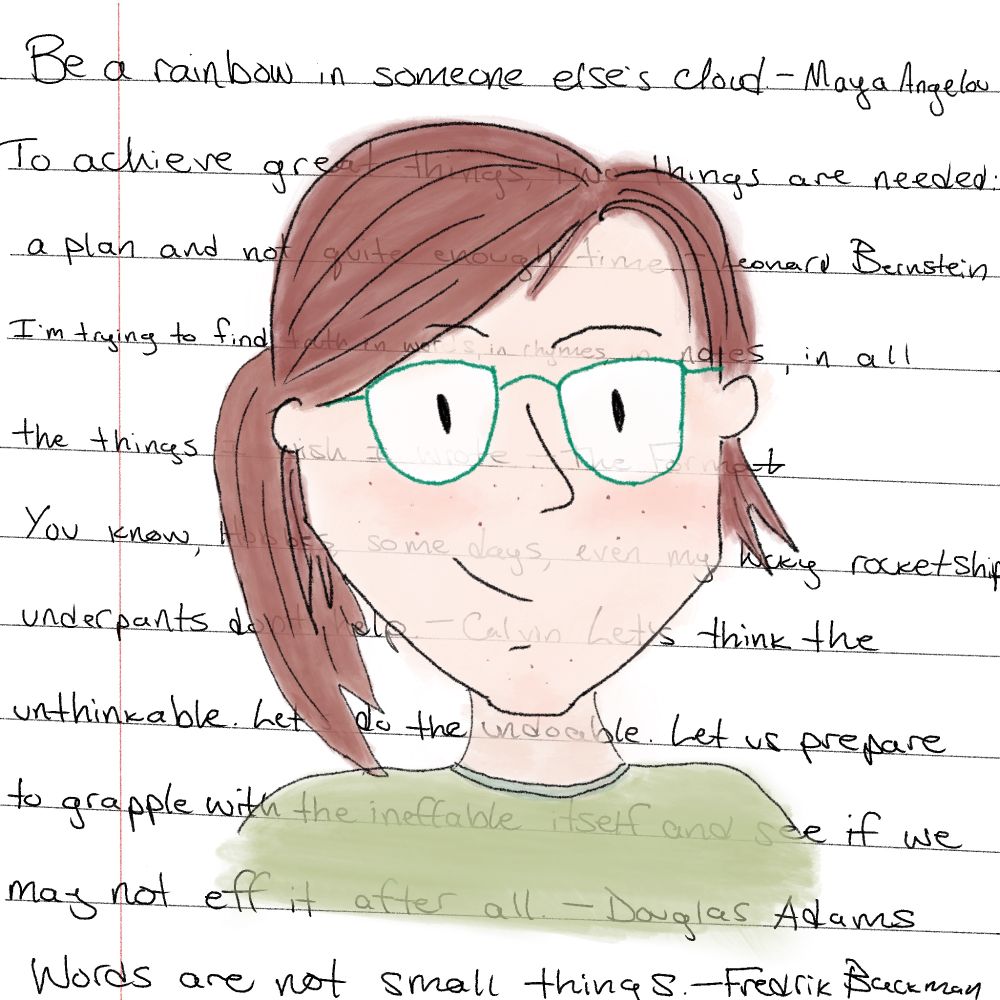 Be a rainbow in someone else's cloud - Maya Angelou
To achieve great things, two things are needed:
a plan and not quite enough time - Leonard Bernstein
I'm trying to find truth in words, in rhymes, in notes, in all
the things I wish I wrote - The Format
You know, Hobbes, some days, even my lucky rocketship
underpants don't help. - Calvin Let's think the
unthinkable. Let's do the undoable. Let us prepare
to grapple with the ineffable itself and see if we
may not eff it after all. - Douglas Adams
Words are not small things. - Fredrik Backman